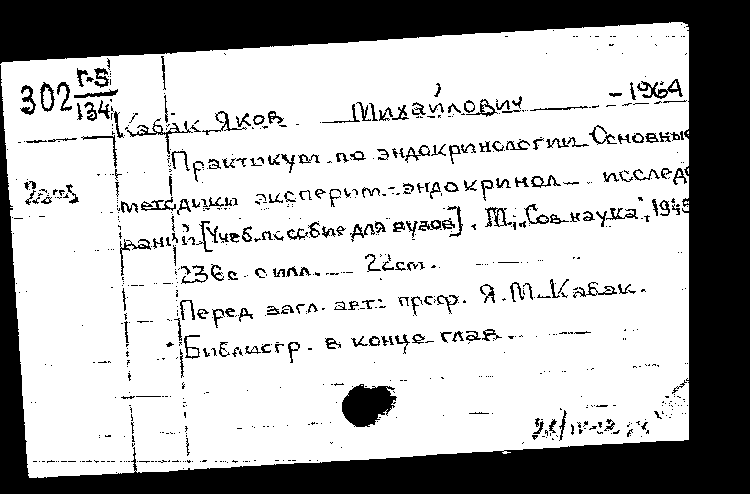 302 Г-5/134
Кабак, Яков Михайлович – 1964
Практикум по эндокринологии. Основные
2 экз
методики эксперим. эндокринол. исследо
ваний [Учеб. пособие для вузов]. М., „Сов. наука", 1945
236 с. с илл. 22 см.
Перед загл. авт.: проф. Я. М. Кабак.
Библиогр. в конце глав.